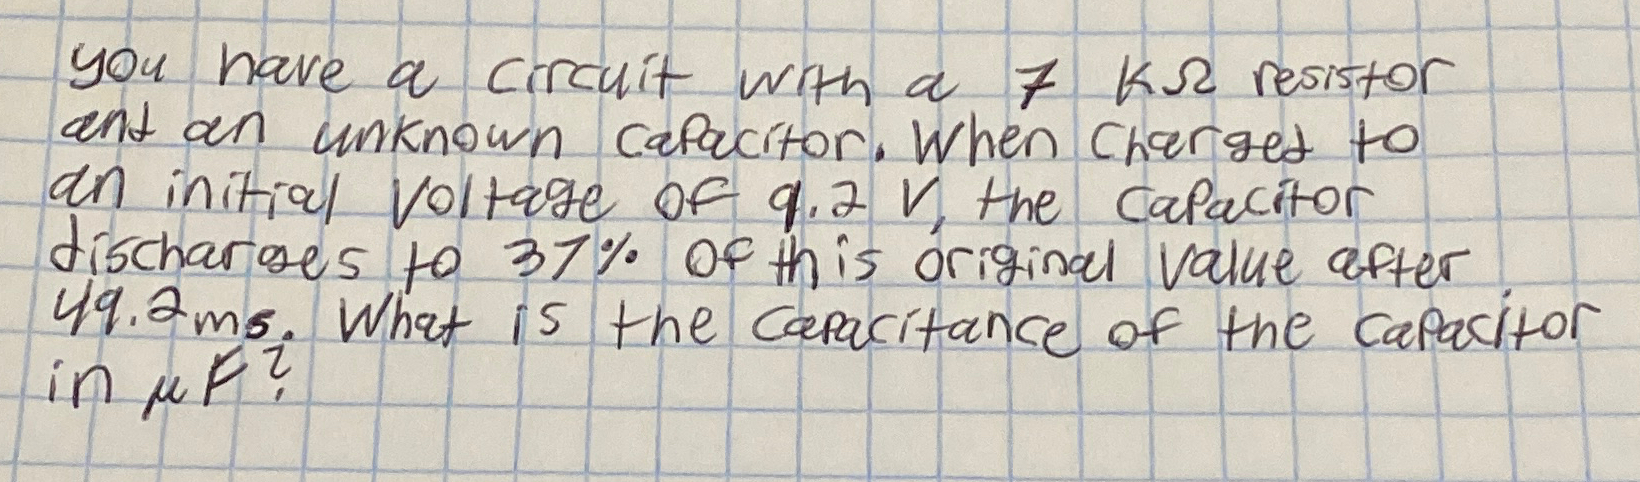 you have a circuit with a 7 KΩ resistor
and an unknown capacitor. When charged to
an initial voltage of 9.2 V, the capacitor
discharges to 37% of this original value after
49.2ms. What is the capacitance of the capacitor
in μF?